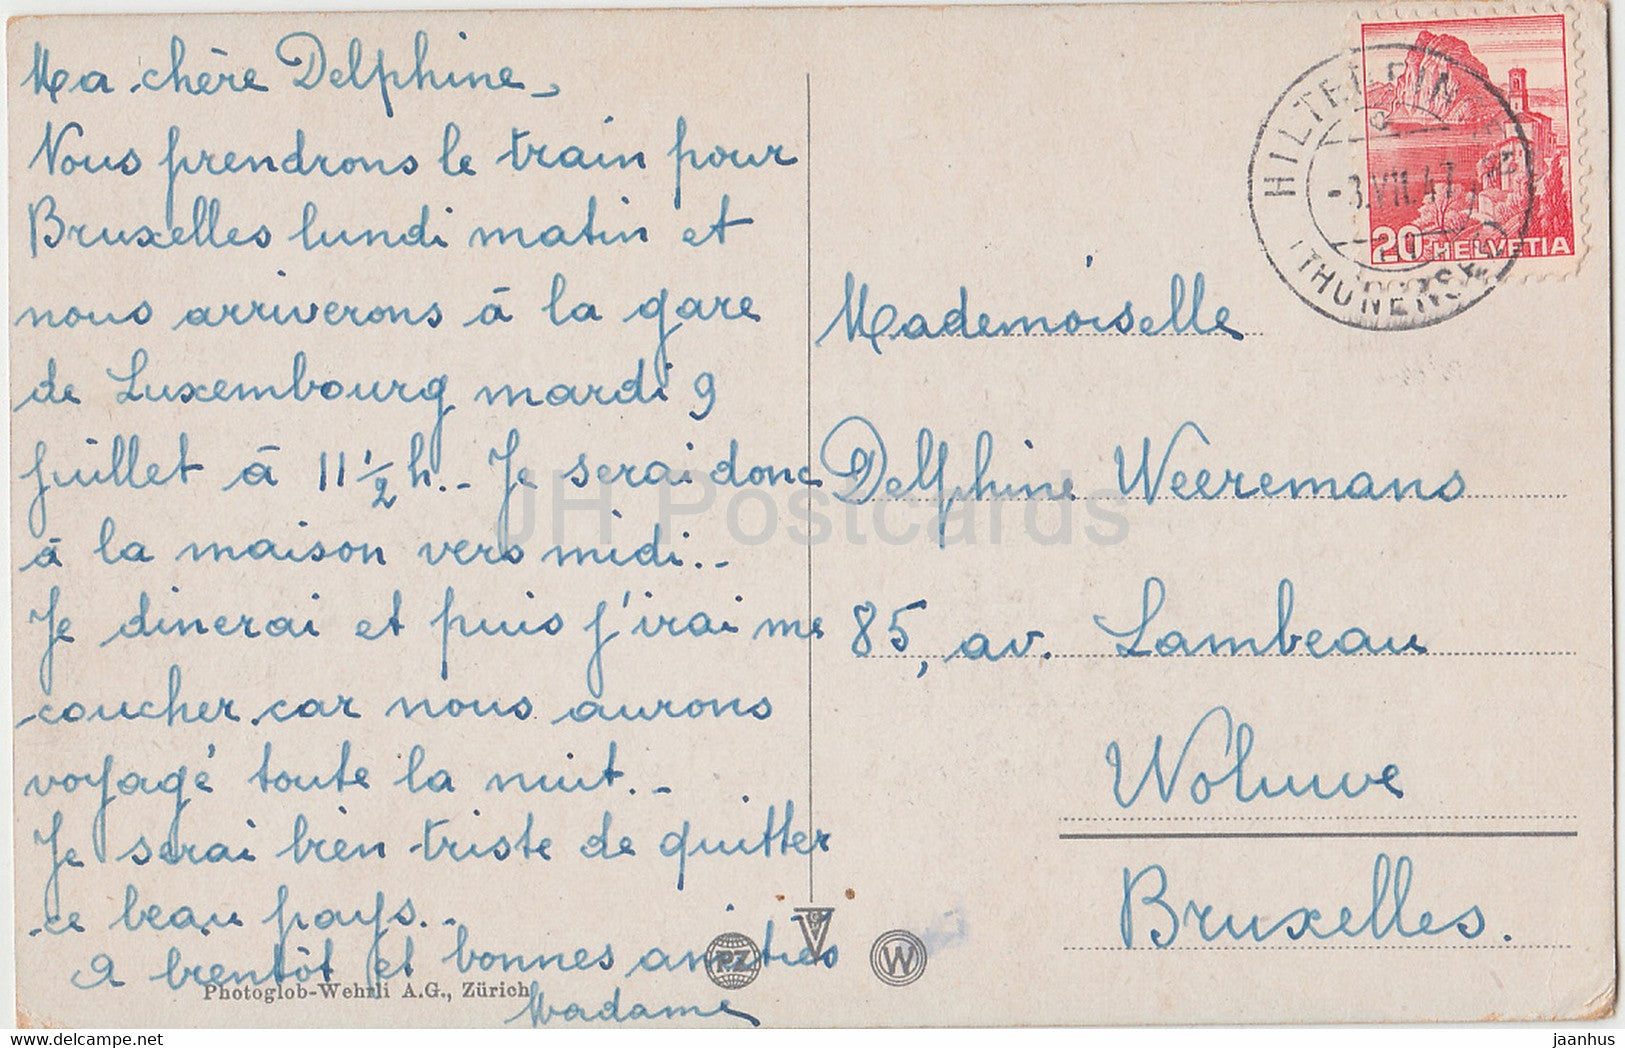 Ma chère Delphine,
Nous prendrons le train pour
Bruxelles lundi matin et
nous arriverons à la gare
de Luxembourg mardi 9
juillet à 11 1/2 h._ Je serai donc
à la maison vers midi._
Je dinerai et puis j'irai me
coucher car nous aurons
voyagé toute la nuit._
Je serai bien triste de quitter
ce beau pays._
A bientôt et bonnes amitiés
Madame
Photoglob-Wehrli A.G., Zürich
PZ
W
Mademoiselle
Delphine Weeremans
85, av. Lambeau
Woluwe
Bruxelles.
HILTERFINGEN
-8.VII.47
(THUNERSEE)
20 HELVETIA
JH Postcards
jaanhus